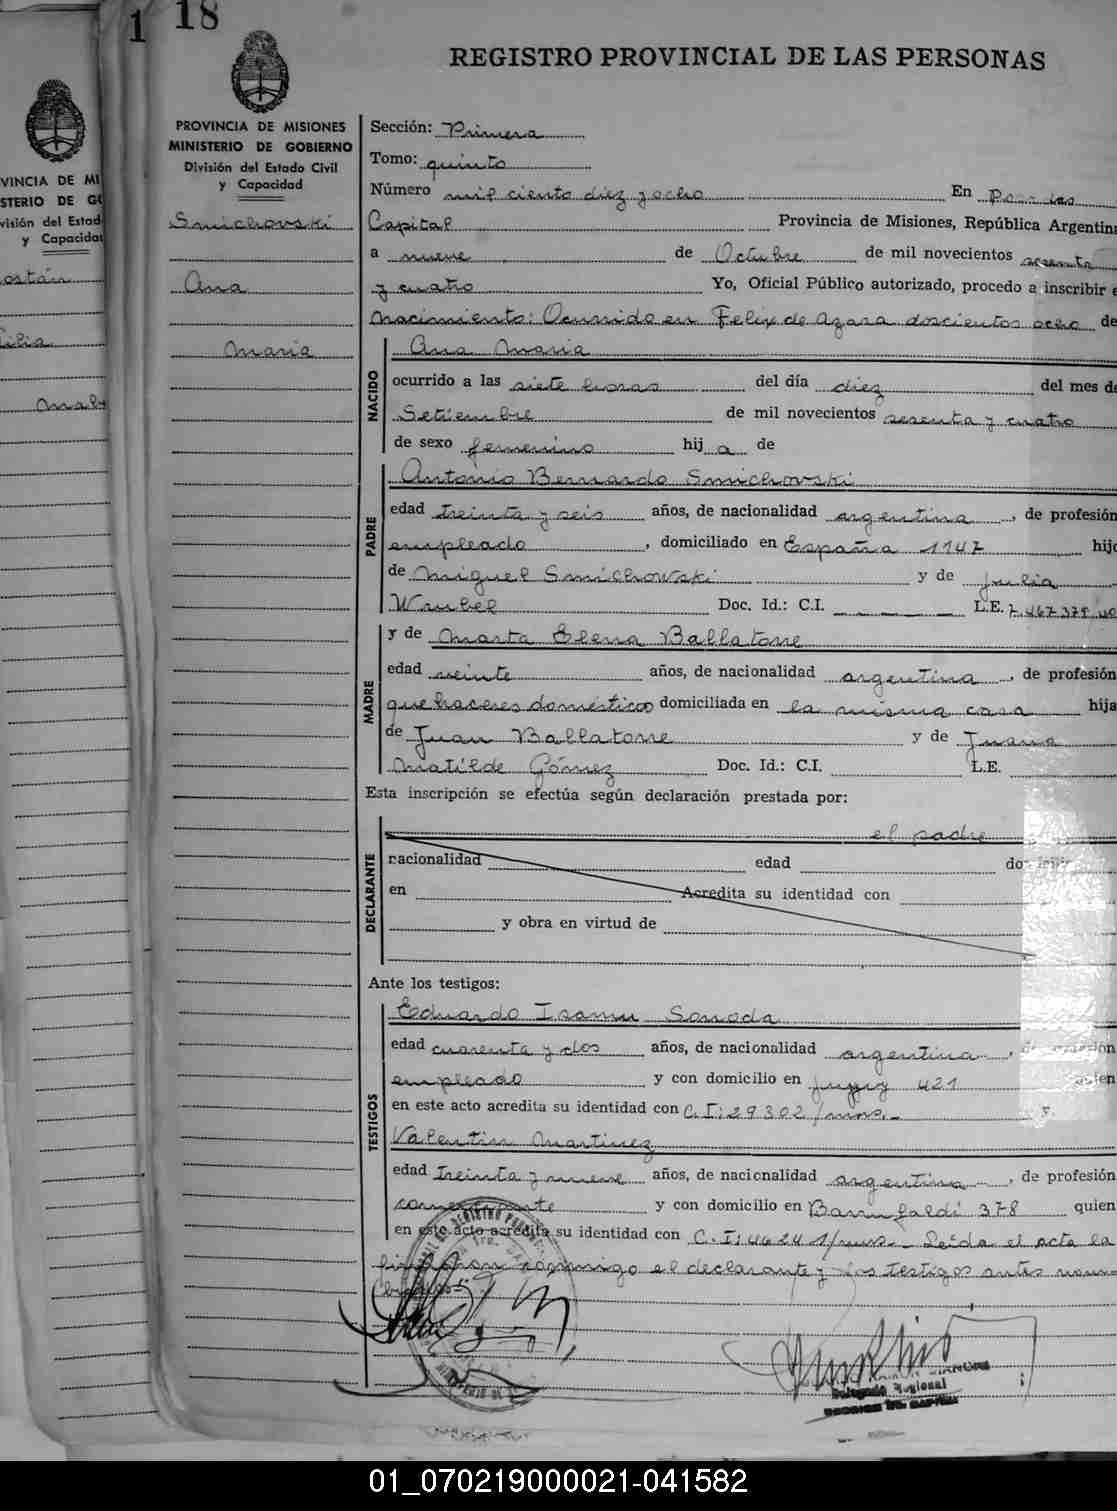 1
18
REGISTRO PROVINCIAL DE LAS PERSONAS
PROVINCIA DE MISIONES
MINISTERIO DE GOBIERNO
División del Estado Civil
y Capacidad
Smichovski
Ana
Maria
Sección: Primera
Tomo: quinto
Número mil ciento diez y ocho En
Capital Provincia de Misiones, República Argentina
a nueve de Octubre de mil novecientos sesenta
y cuatro Yo, Oficial Público autorizado, procedo a inscribir e
Nacimiento: Ocurrido en Felix de Azara doscientos ocho de
NACIDO
Ana Maria
ocurrido a las siete horas del día diez del mes de
Setiembre de mil novecientos sesenta y cuatro
de sexo femenino hij a de
PADRE
Antonio Bernardo Smichovski
edad treinta y seis años, de nacionalidad argentina, de profesión
empleado, domiciliado en España 1147 hijo
de Miguel Smichowski y de Julia
Wrubel Doc. Id.: C.I. L.E. 7.467.379
MADRE
y de Marta Elena Ballatorre
edad veinte años, de nacionalidad argentina, de profesión
quehaceres domésticos domiciliada en la misma casa hija
de Juan Ballatorre y de Juana
Matilde Gómez Doc. Id.: C.I. L.E.
Esta inscripción se efectúa según declaración prestada por:
DECLARANTE
el padre
nacionalidad edad
en Acredita su identidad con
y obra en virtud de
Ante los testigos:
TESTIGOS
Eduardo Isamu Sonoda
edad cuarenta y dos años, de nacionalidad argentina,
empleado y con domicilio en Jujuy 421
en este acto acredita su identidad con C.I: 29302/mns. y
Valentin Martinez
edad treinta y nueve años, de nacionalidad argentina, de profesión
y con domicilio en 378 quien
en este acto acredita su identidad con C.I: 46241/mns. Leida el acta la
conmigo el declarante y los testigos antes
Delegado Regional
VINCIA DE MI
STERIO DE G
visión del Estad
y Capacida
01_070219000021-041582